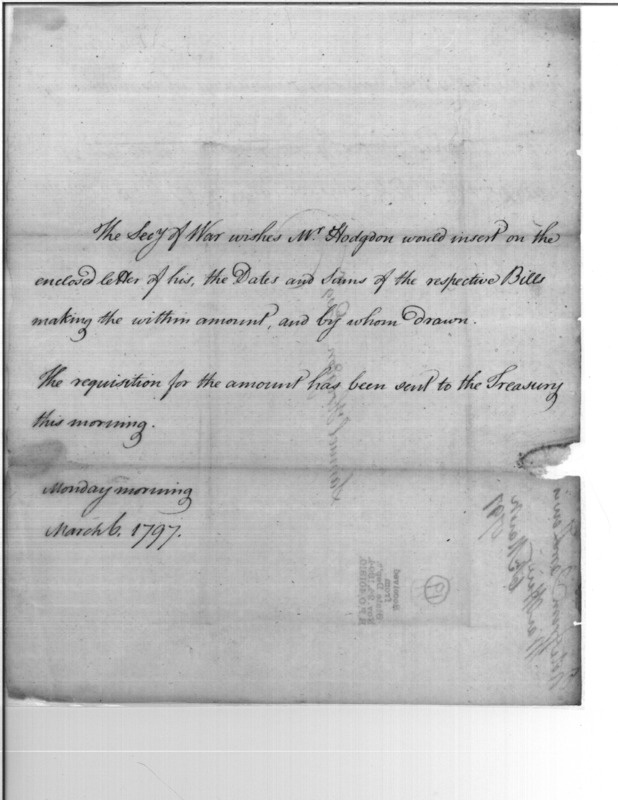 The Secy of War wishes Mr. Hodgdon would insert on the
enclosed letter of his, the Dates and Sums of the respective Bills
making the within amount, and by whom drawn.
The requisition for the amount has been sent to the Treasury
this morning.
Monday morning
March 6. 1797.
Samuel Hodgdon
Received
from
State Dep't